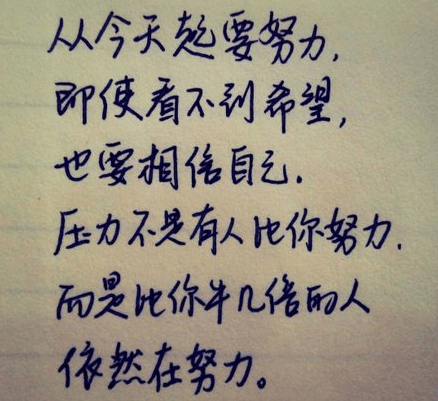 从今天起要努力,
即使看不到希望,
也要相信自己.
压力不是有人比你努力.
而是比你牛几倍的人
依然在努力。